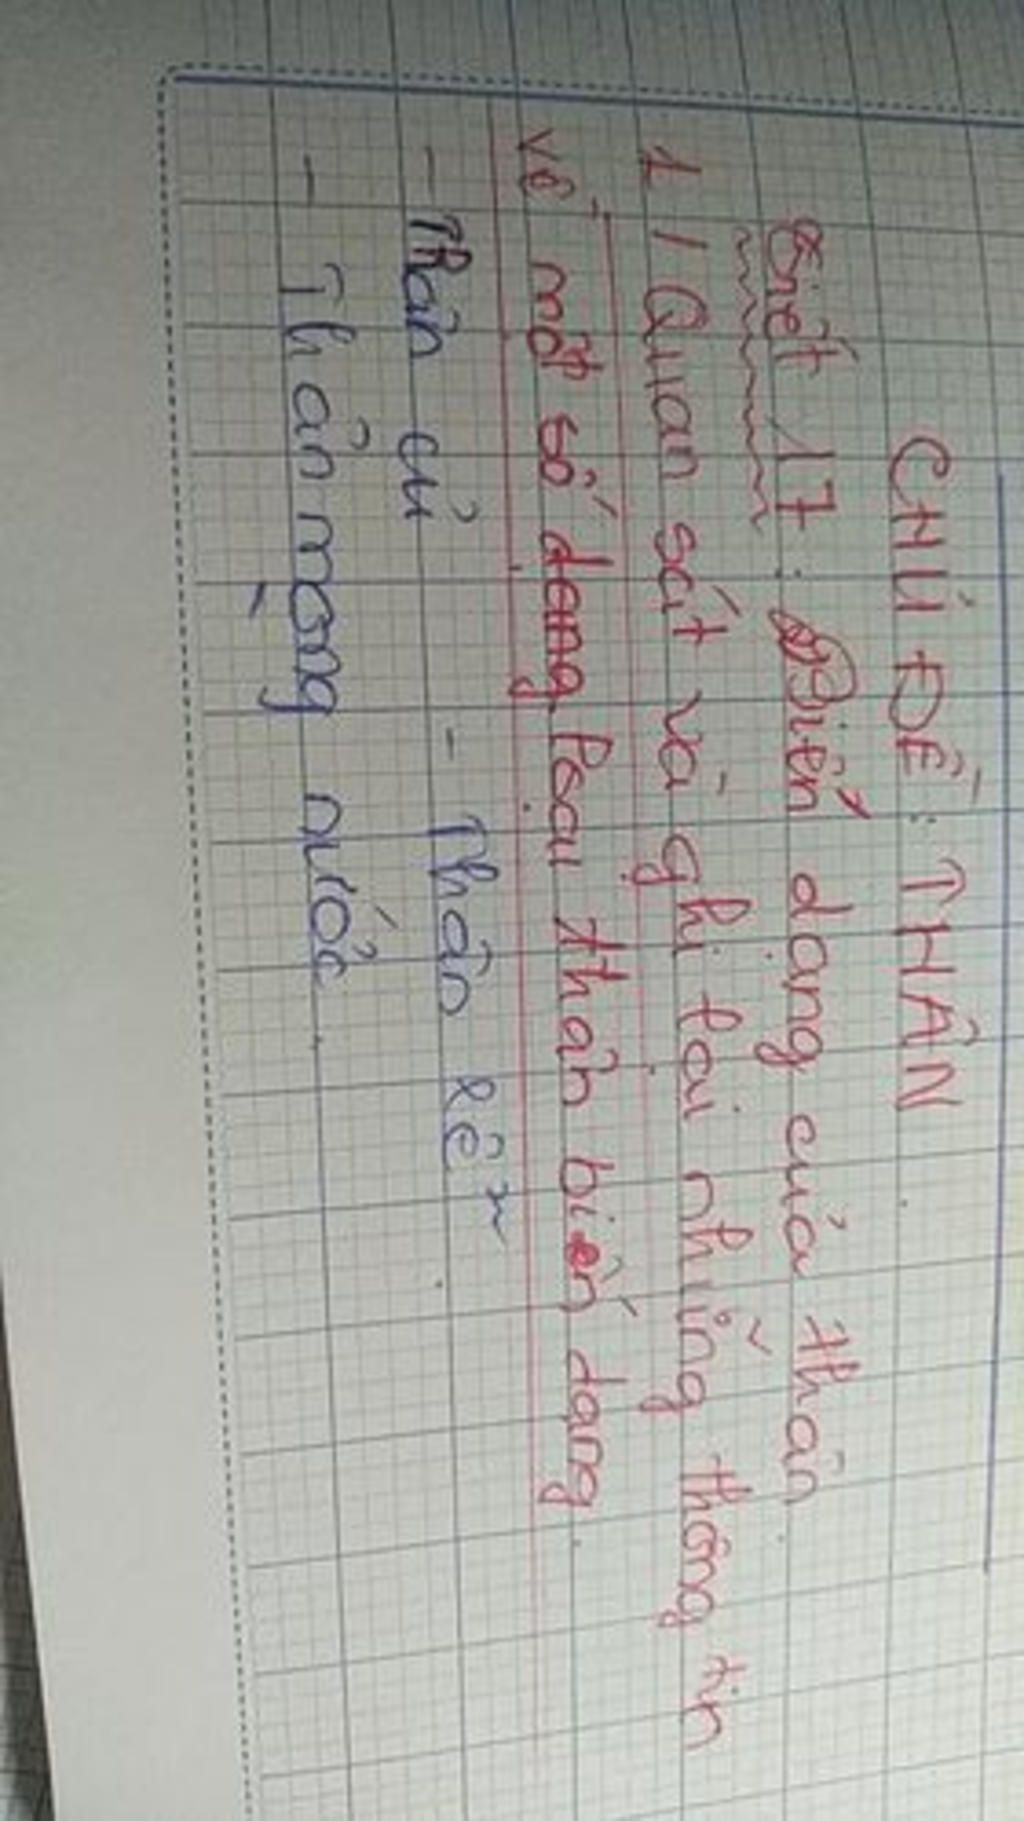 CHỦ ĐỀ: THÂN
Tiết 17: Biến dạng của thân
1 / Quan sát và ghi lại những thông tin
về một số dạng loại thân biến dạng
- Thân củ - Thân rễ
- Thân mọng nước.